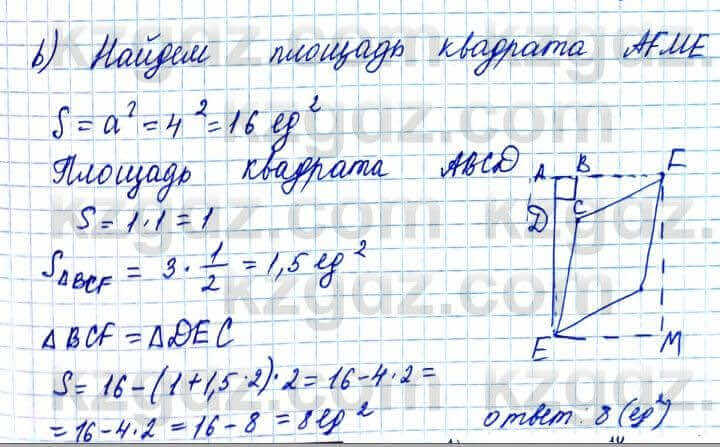 b) Найдем площадь квадрата AFME
S = a² = 4² = 16 ед²
Площадь квадрата ABCD
S = 1·1 = 1
S△BCF = 3 · 1/2 = 1,5 ед²
△BCF = △DEC
S = 16 − (1+1,5·2)·2 = 16 − 4·2 =
= 16 − 4·2 = 16 − 8 = 8 ед²
ответ: 8 (ед²)
A B F
D C
E M
kzgdz.com